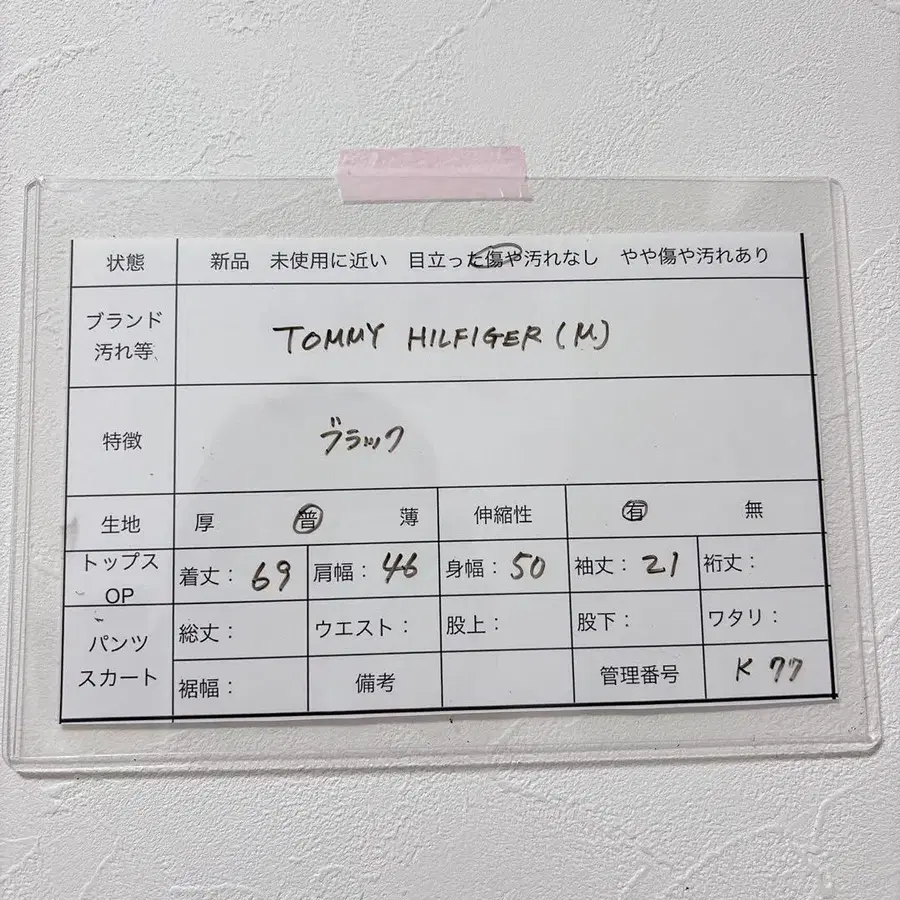 状態 新品 未使用に近い 目立った傷や汚れなし やや傷や汚れあり
ブランド
汚れ等 TOMMY HILFIGER (M)
特徴 ブラック
生地 厚 普 薄 伸縮性 有 無
トップス
OP 着丈： 69 肩幅： 46 身幅： 50 袖丈： 21 裄丈：
パンツ
スカート 総丈： ウエスト： 股上： 股下： ワタリ：
裾幅： 備考 管理番号 K 77